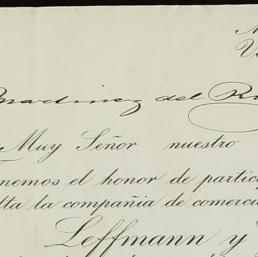 Martinez del R
Muy Señor nuestro
nemos el honor de partic
lta la compañia de comerci
Leffmann y